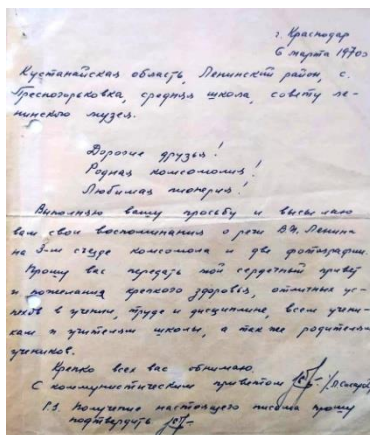 г. Краснодар
6 марта 1970г
Кустанайская область, Ленинский район, с.
Преснозорьковка, средняя школа, совету ле-
нинского музея.
Дорогие друзья!
Родная комсомолия!
Любимая пионерия!
Выполняю вашу просьбу и высылаю
вам свои воспоминания о речи В.И. Ленина
на 3-м съезде комсомола и две фотографии.
Прошу вас передать мой сердечный привет
и пожелания крепкого здоровья, отличных ус-
пехов в учении, труде и дисциплине, всем учени-
кам и учителям школы, а так же родителям
учеников.
Крепко всех вас обнимаю
С коммунистическим приветом
P.S. Получение настоящего письма прошу
подтвердить